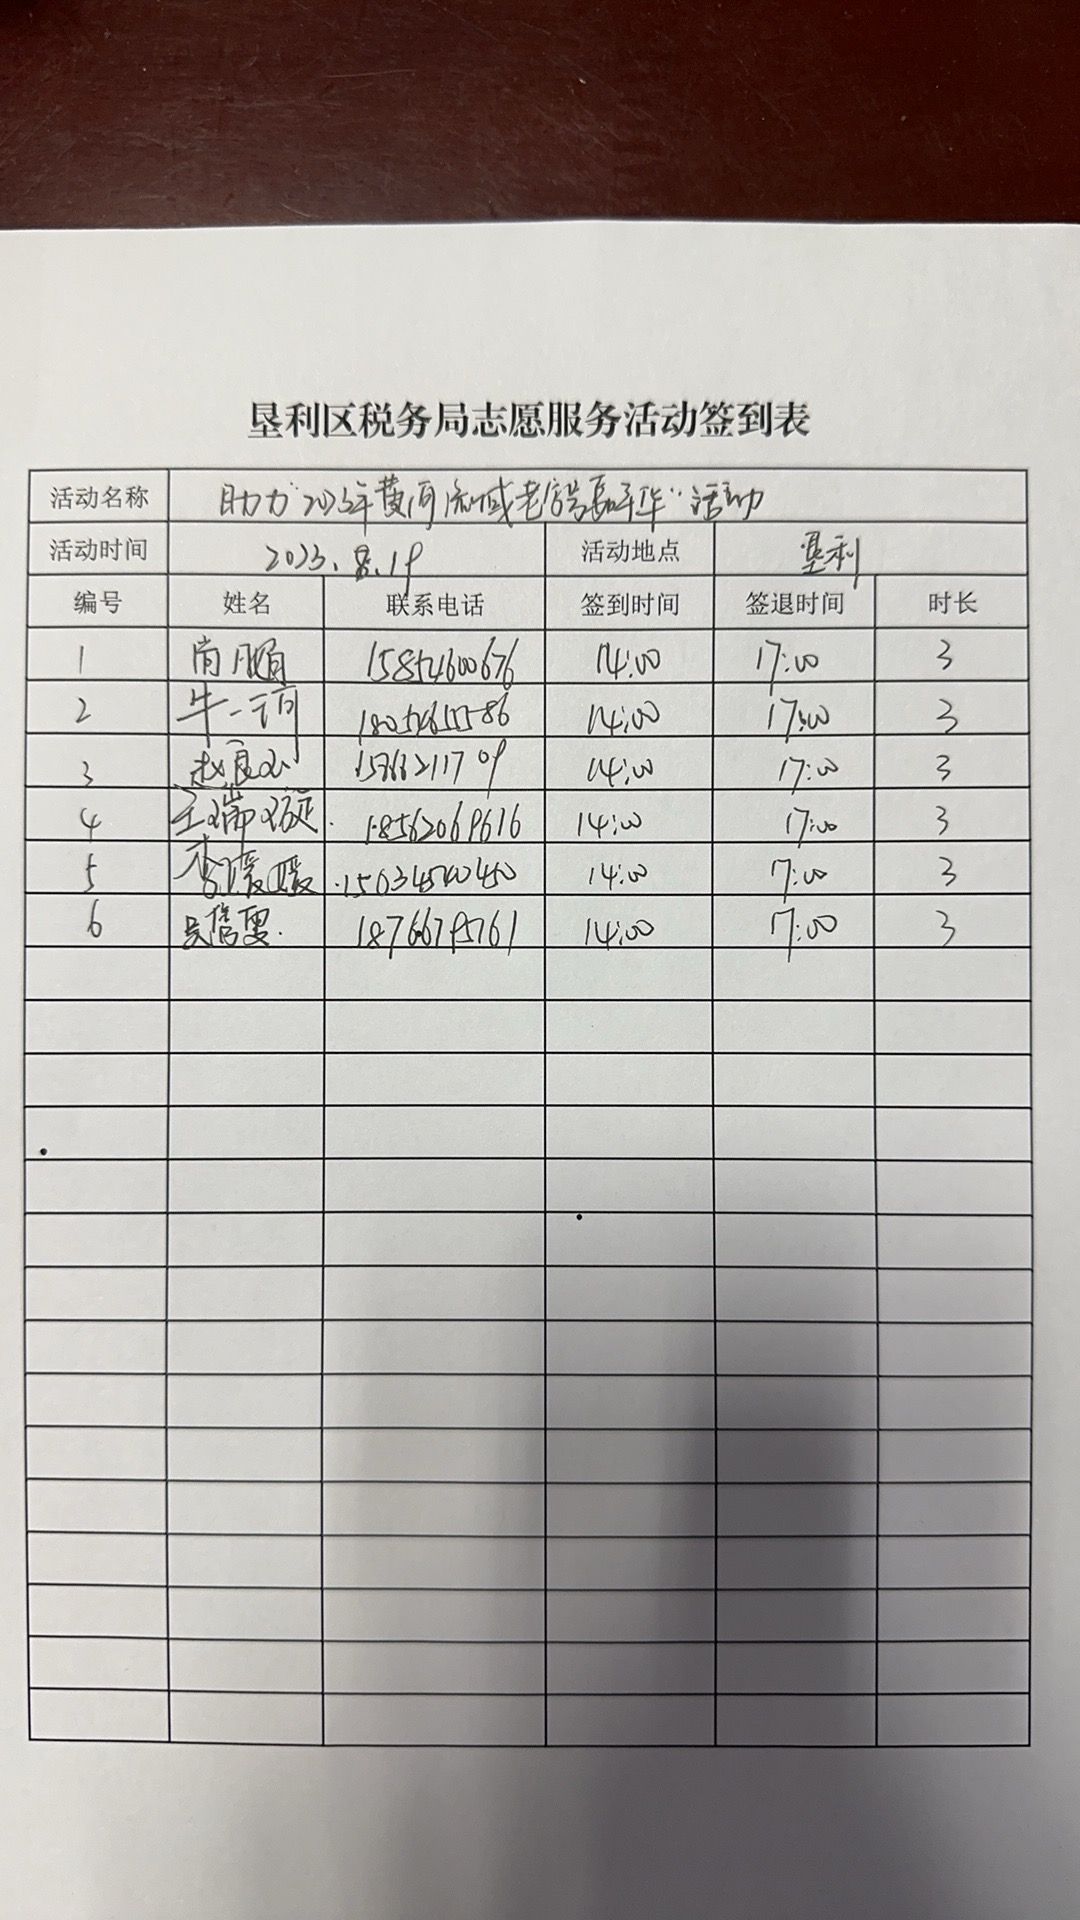 垦利区税务局志愿服务活动签到表
活动名称 助力"2023年黄河流域老字号嘉年华"活动
活动时间 2023.8.19 活动地点 垦利
编号 姓名 联系电话 签到时间 签退时间 时长
1 肖鹏 15854600676 14:00 17:00 3
2 牛一 14:00 17:00 3
3 赵良 14:00 17:00 3
4 王瑞 18562069616 14:00 17:00 3
5 李媛媛 15034540450 14:00 17:00 3
6 吴信雯 18766795761 14:00 17:00 3